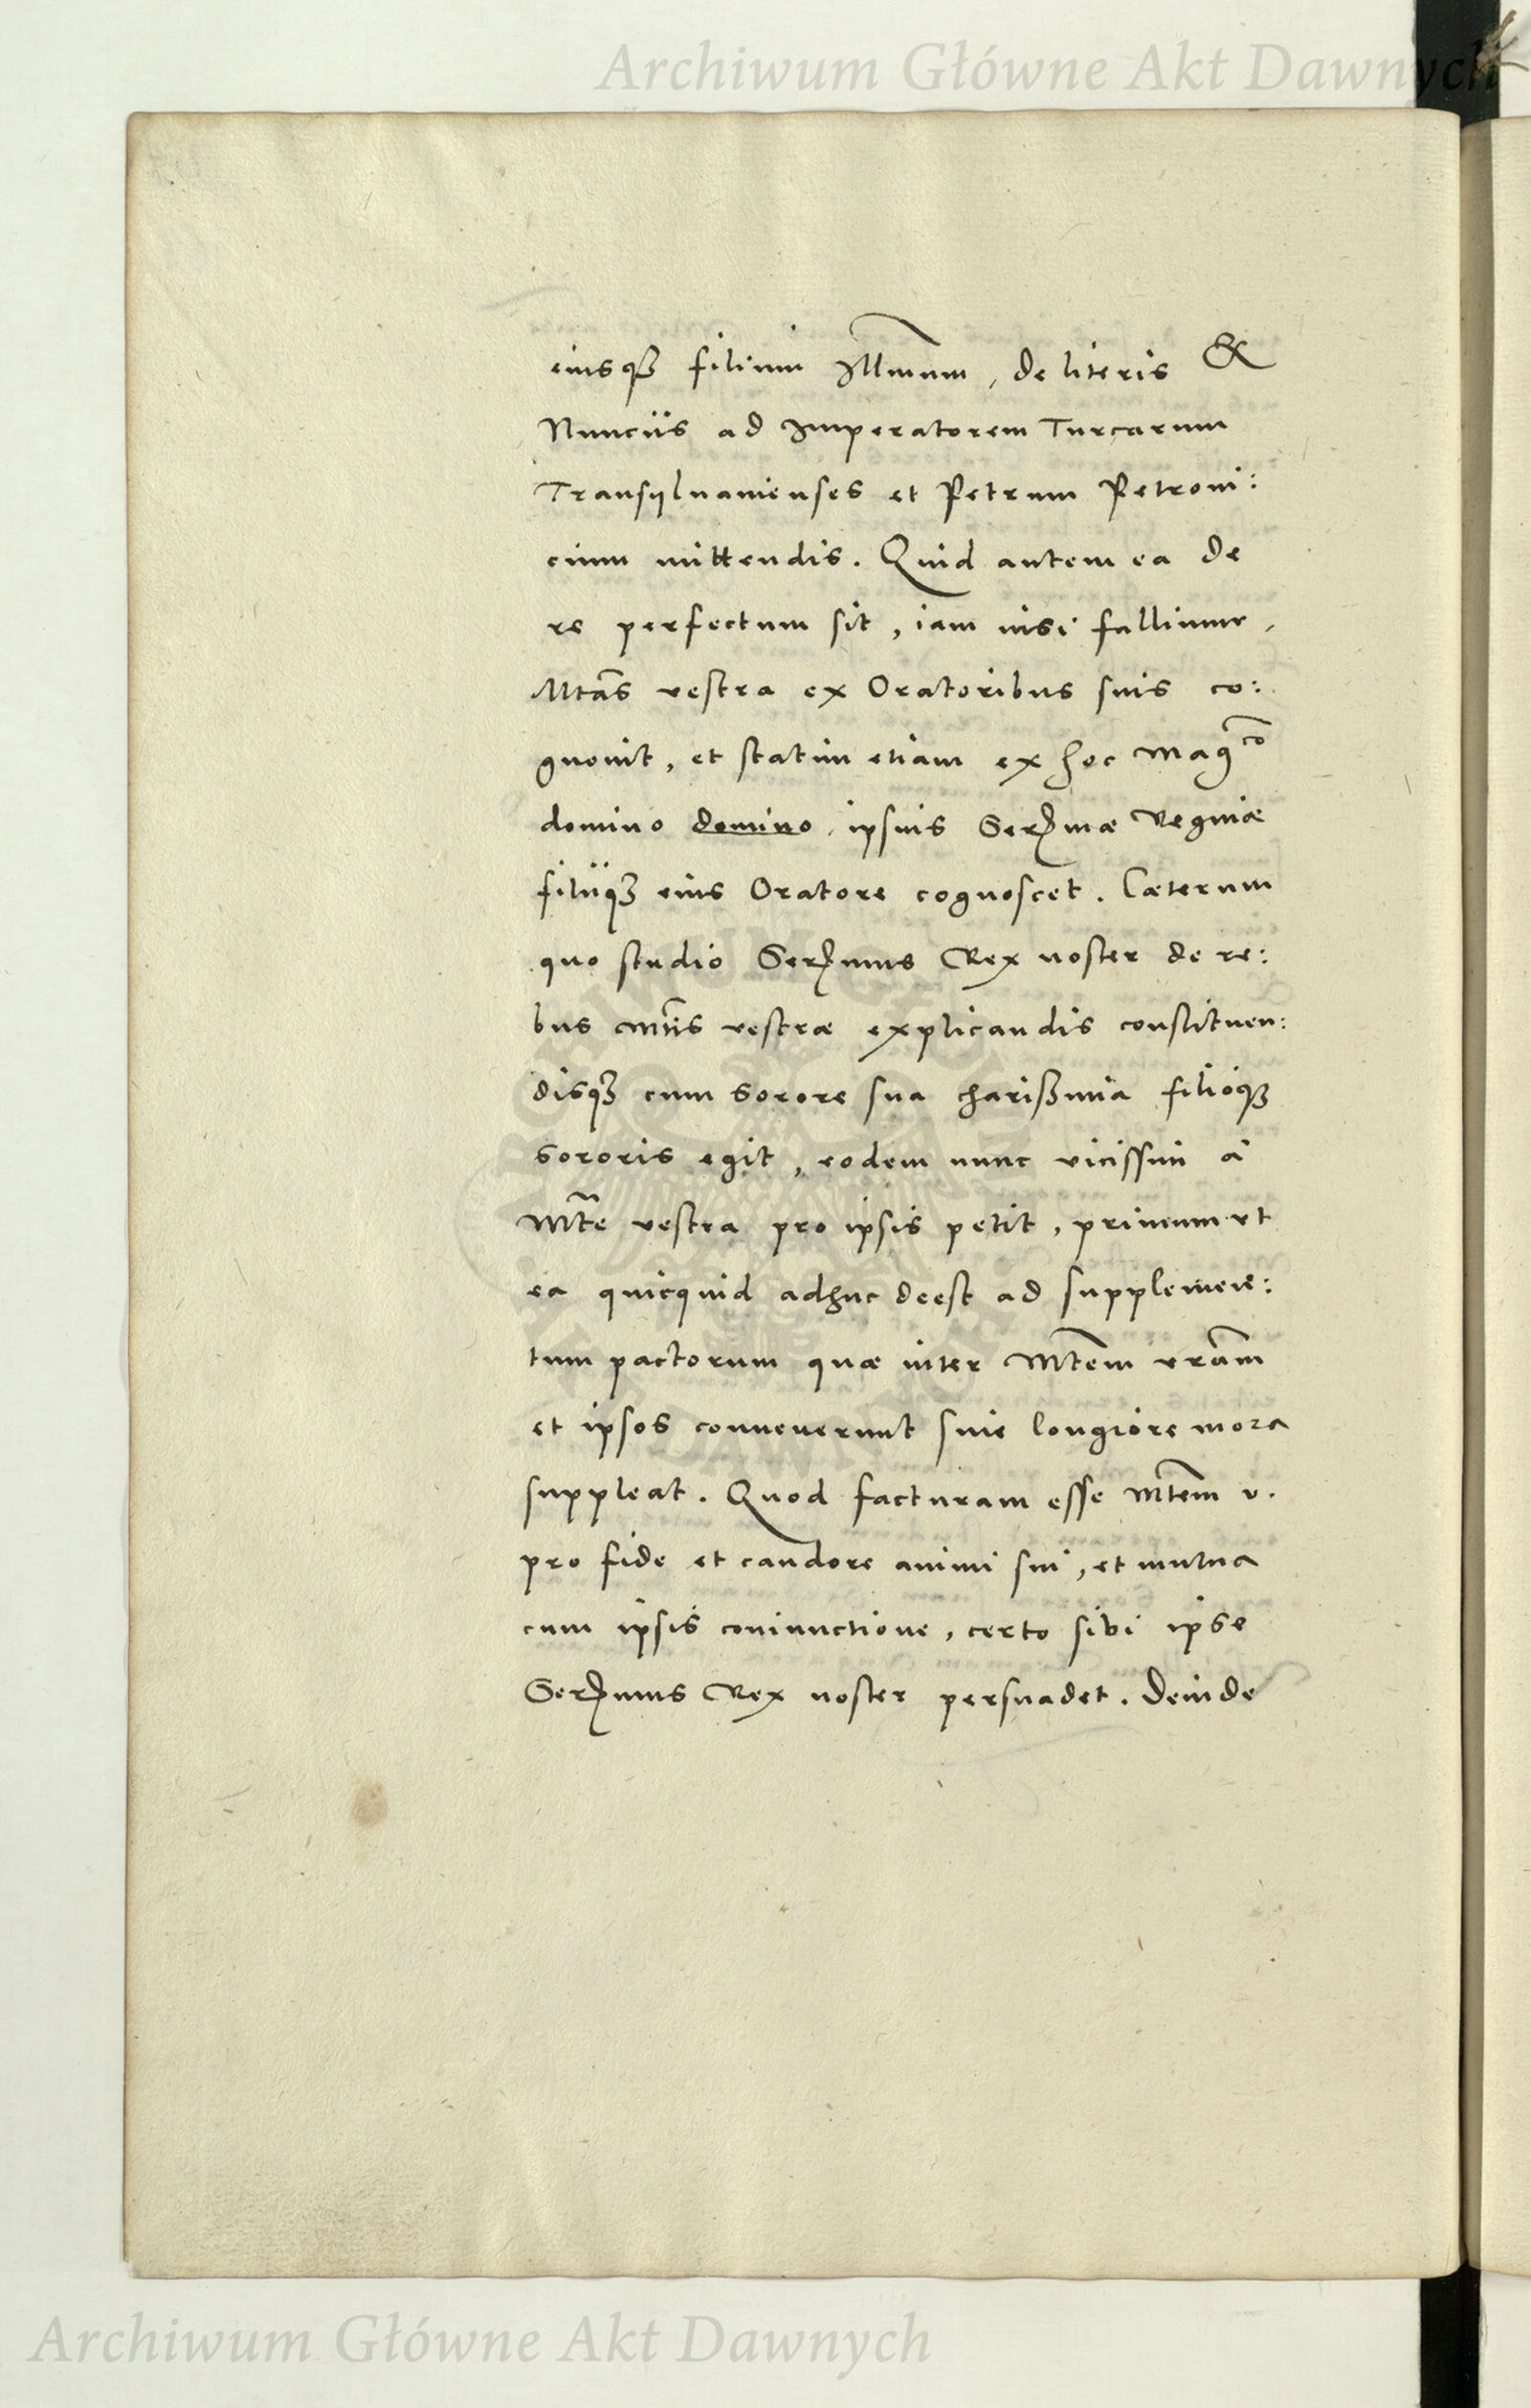 Archiwum Główne Akt Dawnych
eiusq₃ filium Illmum, de literis &
Nuncijs ad Imperatorem Turcarum
Transylvanienses et Petrum Petroui:
cium mittendis. Quid autem ea de
re perfectum sit, iam nisi fallimur,
Mtãs vestra ex Oratoribus suis co:
gnouit, et statim etiam ex hoc Magco
domino domino, ipsius Sermæ Reginæ
filijq₃ eius Oratore cognoscet. Cæterum
quo studio Sermus Rex noster de re:
bus Mtis vestræ explicandis constituen:
disq₃ cum sorore sua charißima filioq₃
sororis egit, eodem nunc vicissim à
Mte vestra pro ipsis petit, primum vt
ea quicquid adhuc deest ad supplemen:
tum pactorum quæ inter Mtem vram
et ipsos conuenerunt sine longiore mora
suppleat. Quod facturam esse Mtem v.
pro fide et candore animi sui, et mutua
cum ipsis coniunctione, certo sibi ipse
Sermus Rex noster persuadet. Deinde
Archiwum Główne Akt Dawnych